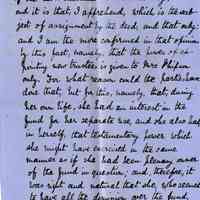 and it is that, I apprehend, which is the sub-
ject of assignment by the deed, and that only:
and I am the more confirmed in that opinion
by this fact, namely, that the power of ap-
pointing new trustees is given to Mrs Phipson
only. For what reason could the parties have
done that, but for this, namely, that, during
her own life, she had an interest in the
fund for her separate use, and she also had
in herself, that testamentary power which
she might have exercised in the same
manner as if she had been plenary owner
of the fund in question; and, therefore, it
was right and natural that she, who seemed
to have all the dominion over the fund,